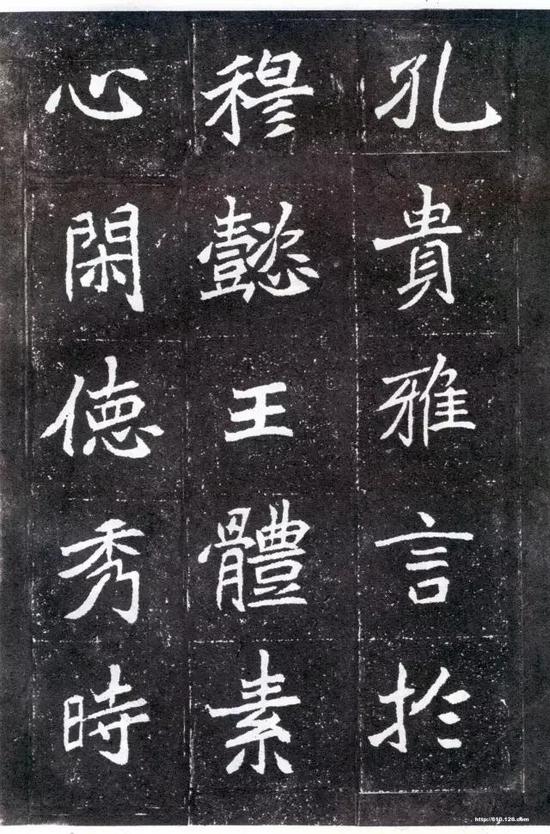 孔貴雅言於
穆懿王體素
心閑徳秀時
http://610.126.com